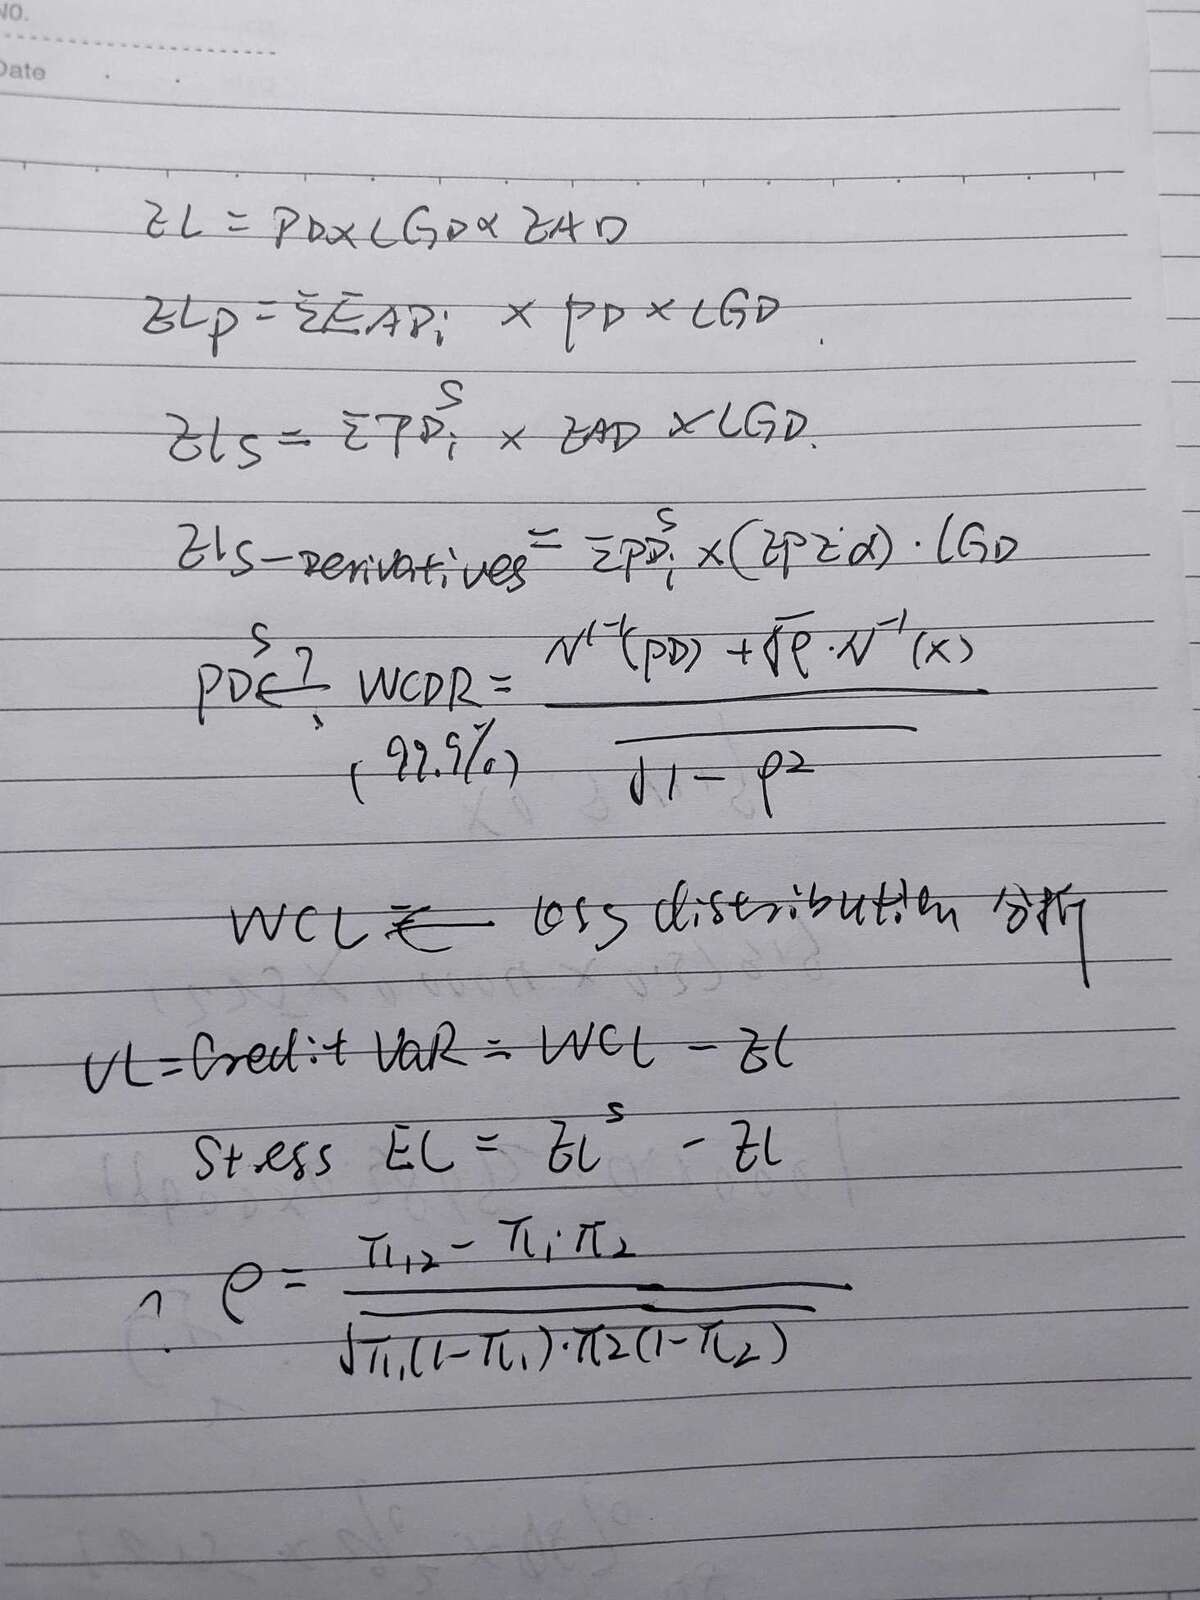 NO.
Date
EL = PD × LGD × EAD
ELp = ΣEADi × PD × LGD.
ELs = ΣPDi^S × EAD × LGD.
ELs-Derivatives = ΣPDi^S × (EPE·α) · LGD
PD^S ←? WCDR = (N^(-1)(PD) + √ρ · N^-1(x)) / √(1 - ρ²)
(99.9%)
WCL ← loss distribution 分析
UL = Credit VaR = WCL - EL
Stess EL = EL^S - EL
? ρ = (π12 - π1·π2) / √(π1(1-π1)·π2(1-π2))